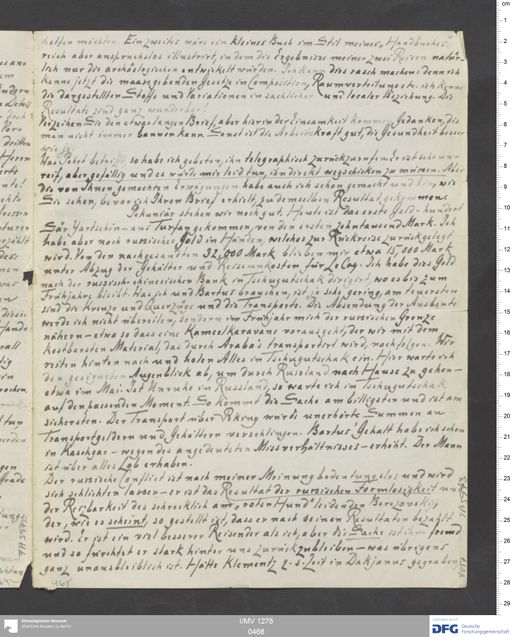 helfen möchten. Ein zweites wäre ein kleines Buch im Stil meines "Handbuches"
reich aber anspruchslos illustriert, in dem die Ergebnisse meiner zwei Reisen natür-
lich nur die archäologischen entwickelt würden. Ich kann dies rasch machen denn ich
kenne jetzt die maassgebenden Gesetze in Composition, Raumverteilung etc. ich kenne
die dargestellten Stoffe und Variationen in sachlicher und localer Beziehung. Die
Resultate sind ganz wunderbar!
Verzeihen Sie den etwas langen Brief, aber hier in der Einsamkeit kommen Gedanken, die
man nicht immer bannen kann. Sonst ist die Arbeitskraft gut, die Gesundheit besser
wie je.
Was Pohrt betrifft, so habe ich gebeten, ihn telegraphisch zurückzurufen. Er ist sehr un-
reif, aber gefällig und es würde mir leid tun, ihn direkt wegschicken zu müssen. Aber
die von Ihnen gemachten Erwägungen habe auch ich schon gemacht und bin, wie
Sie sehen, bevor ich Ihren Brief erhielt, zu demselben Resultat gekommen.
Pekuniär stehen wir noch gut. Heute ist das erste Geld - hundert
Sär Jartschin - aus Turfan gekommen, von den ersten zehntausend Mark. Ich
habe aber noch russisches Gold in Händen, welches zur Rückreise zurückgelegt
wird. Von den nachgesandten 32,000 Mark blieben mir etwa 15,000 Mark
unter Abzug der Gehälter und Reiseunkosten für Le Coq. Ich habe dies Geld
nach der russisch-chinesischen Bank in Tschugutschak dirigirt, wo es bis zum
Frühjahre bleibt. Was ich und Bartus brauchen, ist ja sehr gering, am teuersten
sind die Kreuz- und Querzüge und die Transporte. Die Absendung der Ausbeute
werde ich nicht übereilen, sondern im Frühjahr mich der russischen Grenze
nähern - etwa so dass eine Kameelkaravane vorausgeht, der wir mit dem
kostbarsten Material, das durch Araba's transportirt wird, nachfolgen. Wir
reiten hinten nach und holen Alles in Tschugutschak ein. Hier warte ich
den geeigneten Augenblick ab, um durch Russland nach Hause zu gehen -
etwa im Mai. Ist Unruhe in Russland, so warte ich in Tschugutschak
auf den passenden Moment. So kommt die Sache am billigsten und ist am
sichersten. Der Transport über Peking würde unerhörte Summen an
Transportgeldern und Gehältern verschlingen. Bartus' Gehalt habe ich schon
in Kaschgar - wegen des angedeuteten Missverhältnisses - erhöht. Der Mann
ist über alles Lob erhaben.
Der russische Conflict ist nach meiner Meinung bedeutungslos und wird
sich schlichten lassen - er ist das Resultat der russischen Formlosigkeit und
der Reizbarkeit des schrecklich am "roten Hund" leidenden Berezovskij
der, wie es scheint, so gestellt ist, dass er nach seinen Resultaten bezahlt
wird. Er ist ein viel besserer Reisender als ich, aber die Sache ist ihm fremd
und so fürchtet er stark hinter uns zurückzubleiben - was übrigens
ganz unausbleiblich ist. Hätte Klementz z. s. Zeit in Dakjanus gegraben,
465
Ethnologisches Museum
Staatliche Museen zu Berlin
I/MV 1278
0468
DFG Deutsche
Forschungsgemeinschaft